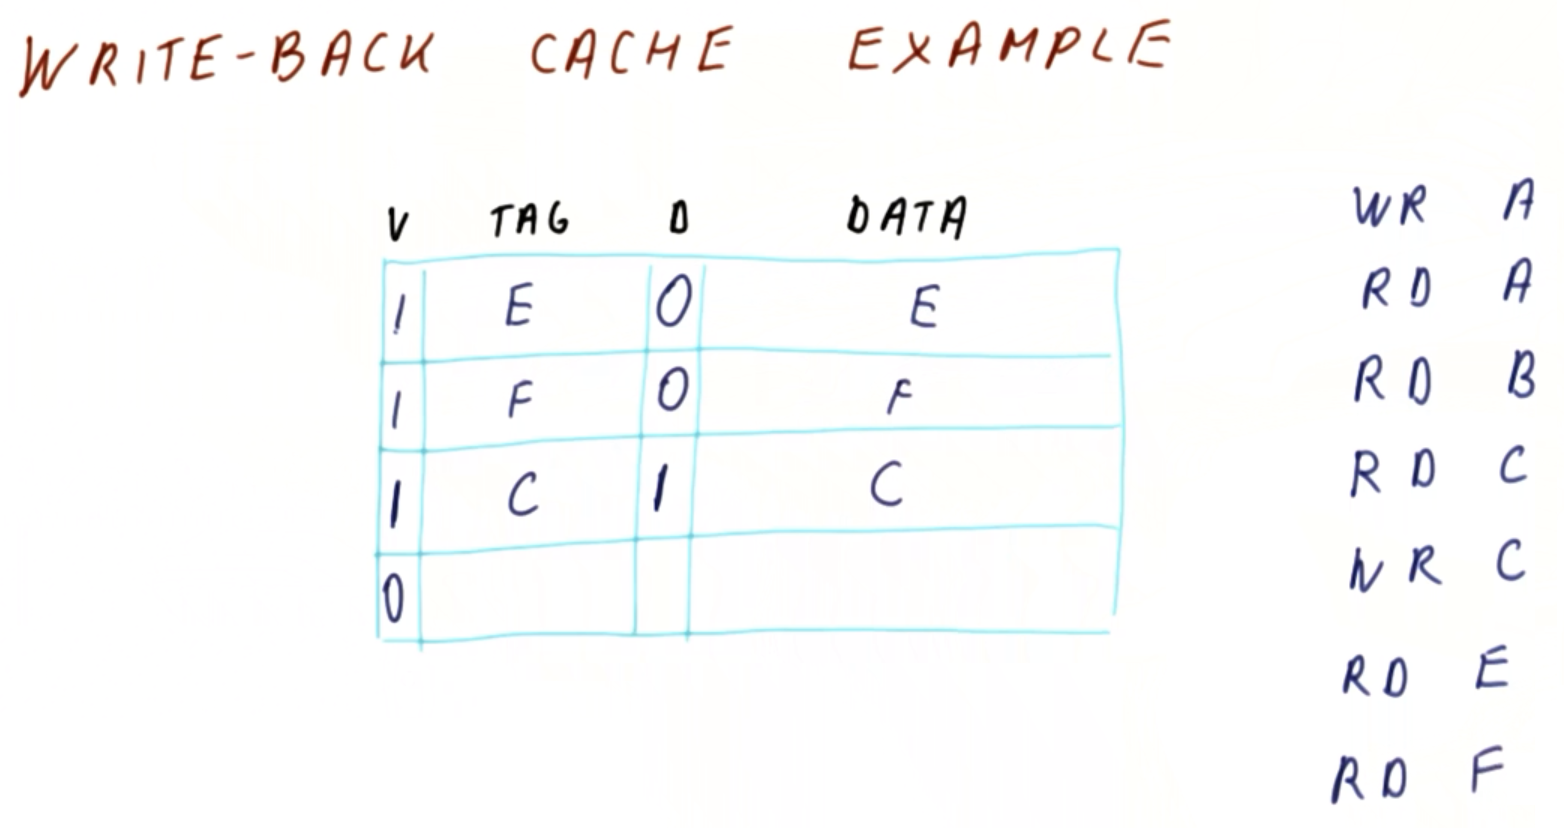 WRITE-BACK CACHE EXAMPLE
V TAG D DATA
1 E 0 E
1 F 0 F
1 C 1 C
0
WR A
RD A
RD B
RD C
WR C
RD E
RD F